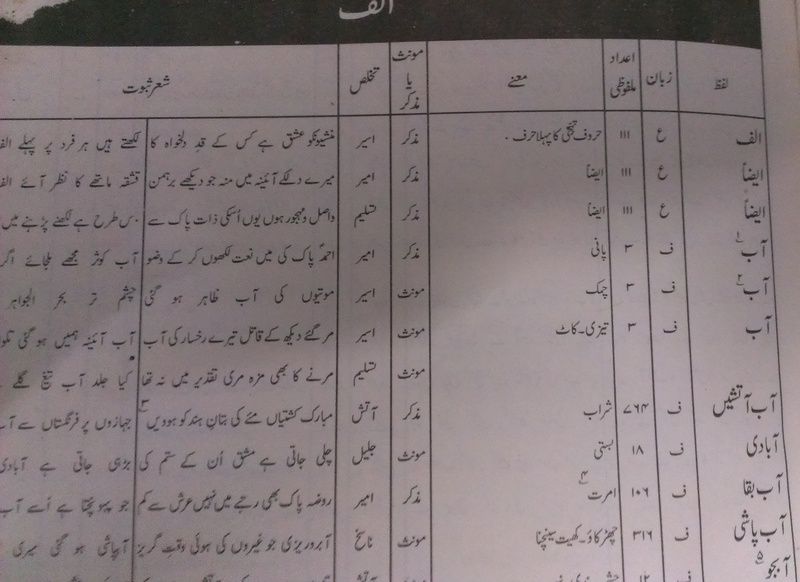 الف
لفظ زبان اعداد ملفوظی معنے مونث یا مذکر تخلص شعر ثبوت
الف ع ۱۱۱ حروف تہجی کا پہلا حرف۔ مذکر امیر منشیونکو عشق ہے کس کے قد دلخواہ کا لکھتے ہیں ہر فرد پر پہلے الف
ایضاً ع ۱۱۱ ایضاً مذکر امیر میرے دلکے آئینہ میں منہ جو دیکھے برہمن قشقہ ماتھے کا نظر آئے الف
ایضاً ع ۱۱۱ ایضاً مذکر تسلیم واصل و مہجور ہوں یوں اُسکی ذات پاک سے جس طرح ہے لکھنے پڑہنے میں
آب۱ ف ۳ پانی مذکر امیر احمدؐ پاک کی میں نعت لکھوں کر کے وضو آب کوثر مجھے ملجائے اگر
آب۲ ف ۳ چمک مونث اسیر موتیوں کی آب ظاہر ہو گئی چشم تر بحر الجواہر
آب ف ۳ تیزی۔ کاٹ مونث اسیر مر گئے دیکھ کے قاتل تیرے رخسار کی آب آب آئینہ ہمیں ہو گئی
مونث تسلیم مرنے کا بھی مزہ مری تقدیر میں نہ تھا کیا جلد آب تیغ گلے
آب آتشیں ف ۷۶۴ شراب مذکر آتش مبارک کشتیاں مئے کی بتان ہند کو ہودیں۳ جہازوں پر فرنگستاں سے
آبادی ف ۱۸ بستی مونث جلیل چلی جاتی ہے مشق اُن کے ستم کی بڑہی جاتی ہے آبادی
آب بقا ف ۱۰۶ امرت۴ مذکر امیر روضہ پاک بھی رتبے میں نہیں عرش سے کم جو پہونچتا ہے اُسے آب
آب پاشی ف ۳۱۶ چھڑکاؤ۔ کھیت سینچنا مونث ناسخ آبروریزی جو غیروں کی ہوئی وقت گریز آبپاشی ہو گئی میری
آبجو۵ ف